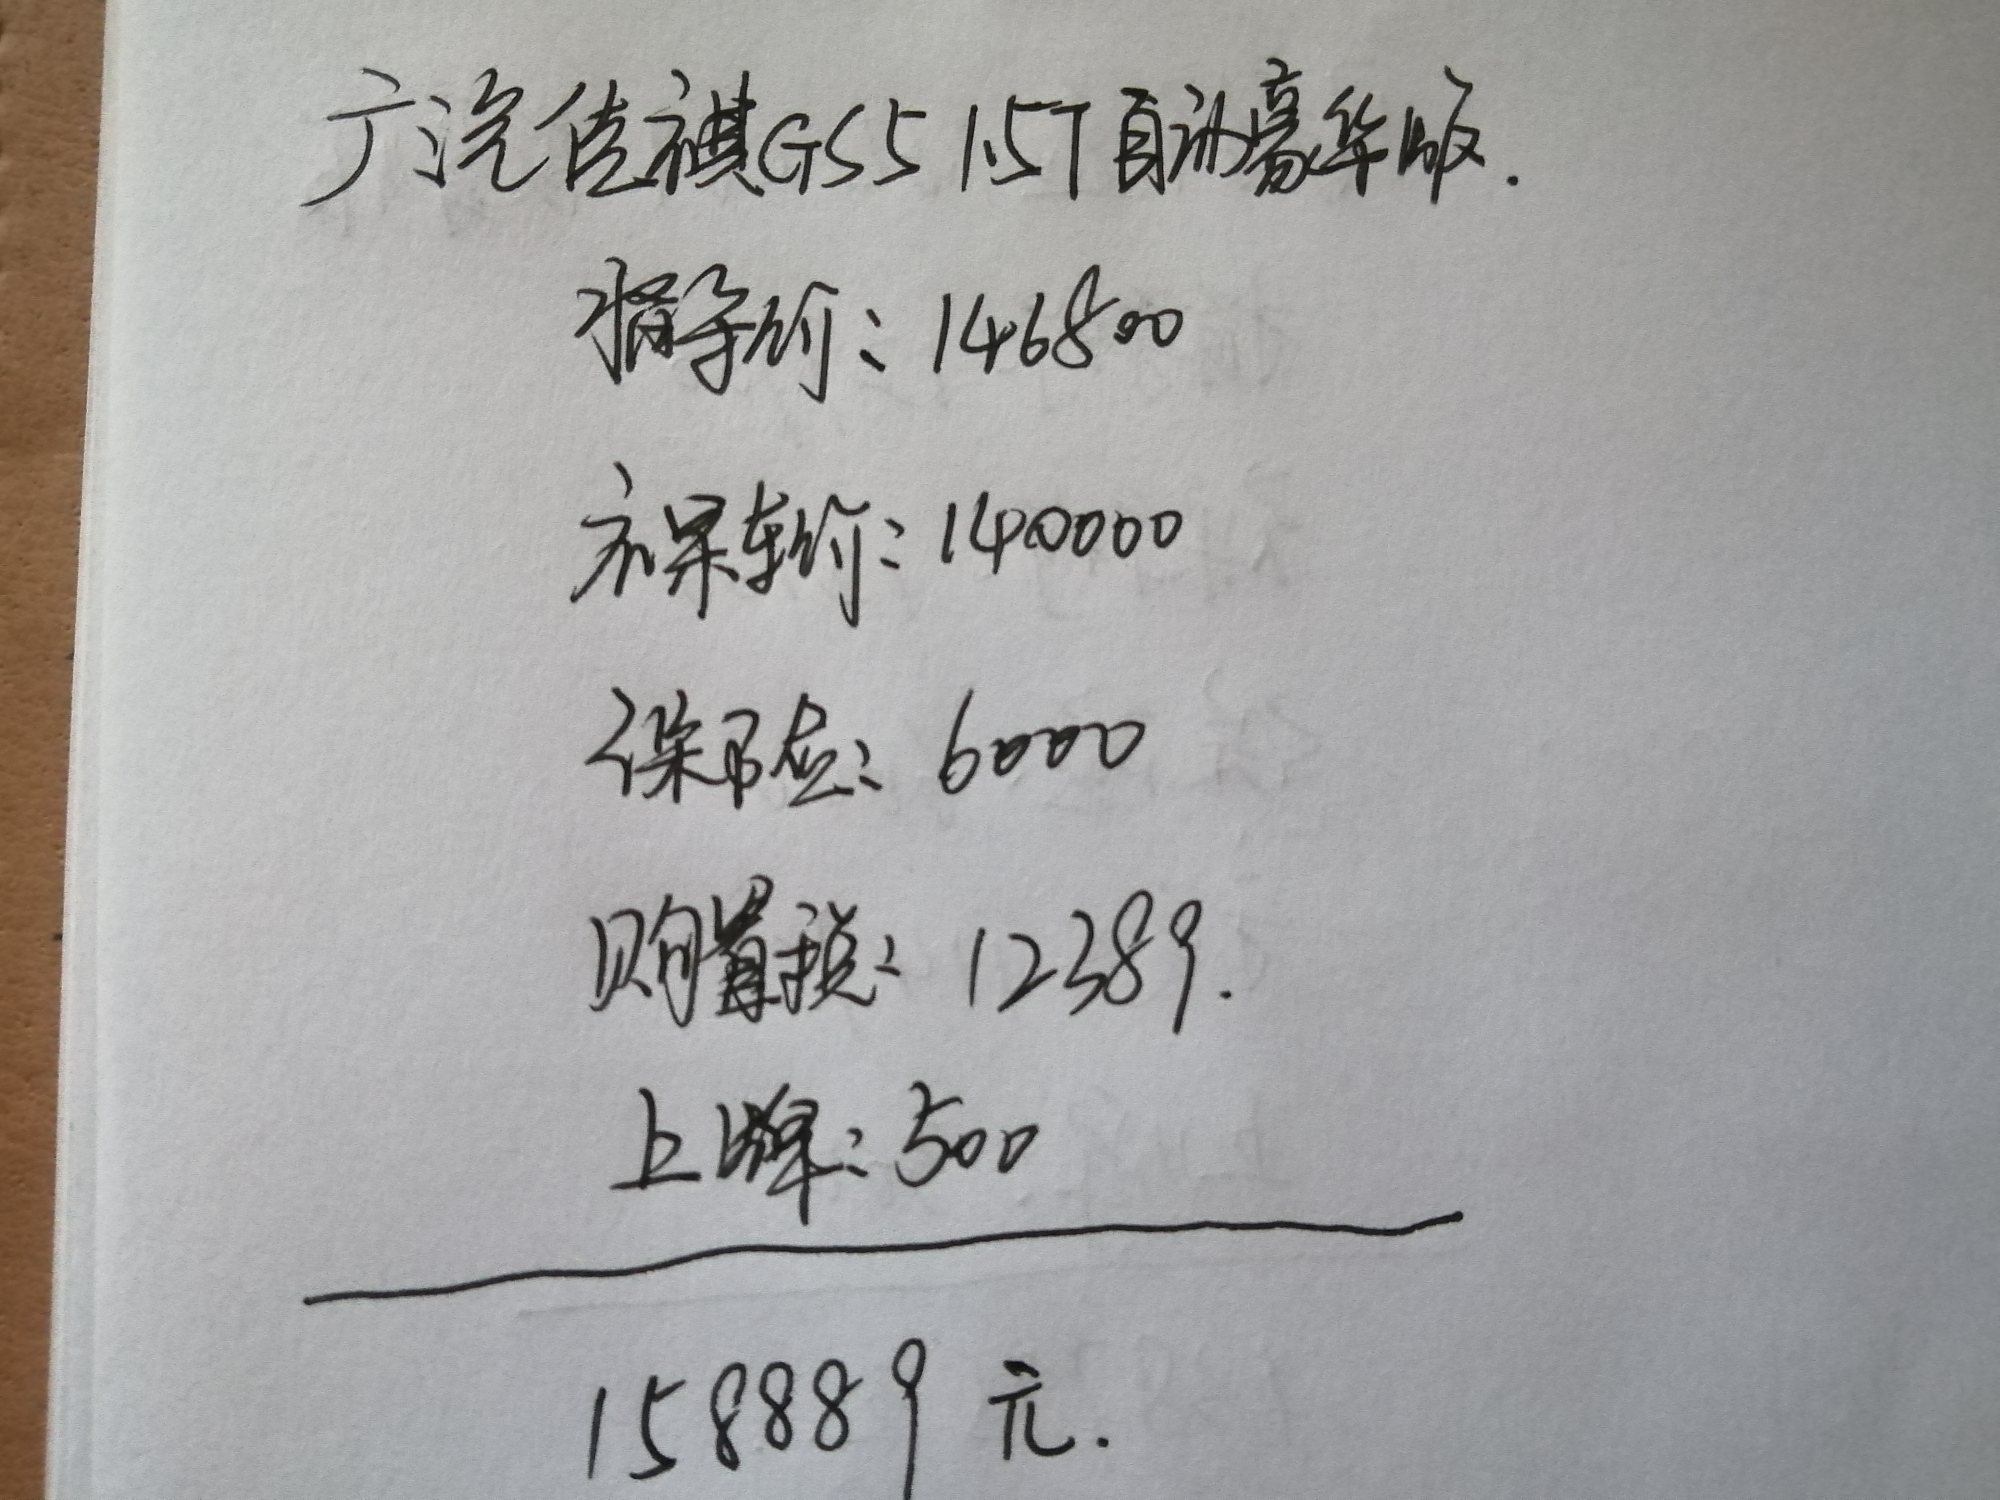 广汽传祺GS5 1.5T自动豪华版.
指导价:146800
裸车价:140000
保险:6000
购置税:12389.
上牌:500
158889元.